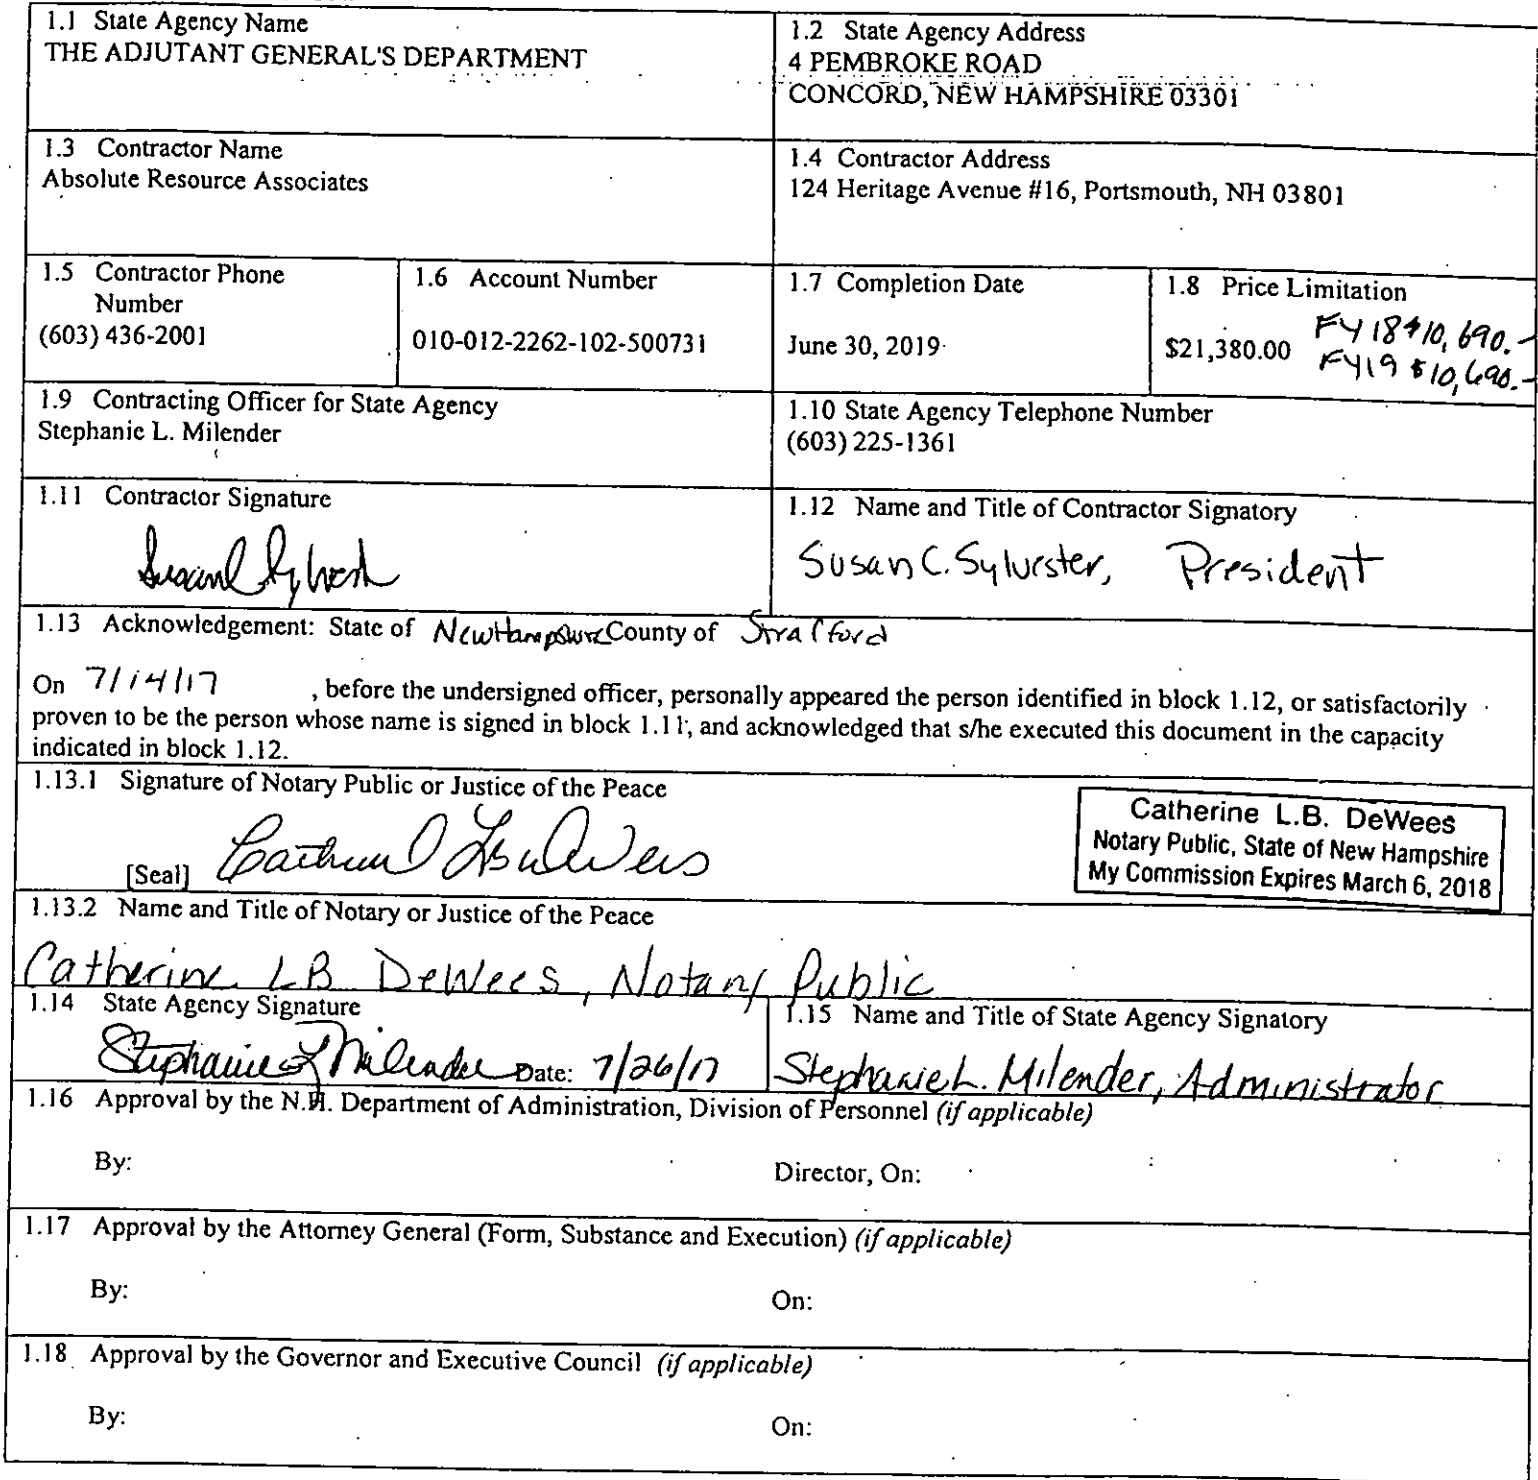 1.1 State Agency Name
THE ADJUTANT GENERAL'S DEPARTMENT
1.2 State Agency Address
4 PEMBROKE ROAD
CONCORD, NEW HAMPSHIRE 03301
1.3 Contractor Name
Absolute Resource Associates
1.4 Contractor Address
124 Heritage Avenue #16, Portsmouth, NH 03801
1.5 Contractor Phone
Number
(603) 436-2001
1.6 Account Number
010-012-2262-102-500731
1.7 Completion Date
June 30, 2019
1.8 Price Limitation
$21,380.00
FY18 $10,690.-
FY19 $10,690.-
1.9 Contracting Officer for State Agency
Stephanie L. Milender
1.10 State Agency Telephone Number
(603) 225-1361
1.11 Contractor Signature
Susan C Sylvester
1.12 Name and Title of Contractor Signatory
Susan C. Sylvester, President
1.13 Acknowledgement: State of New Hampshire County of Strafford
On 7/14/17 , before the undersigned officer, personally appeared the person identified in block 1.12, or satisfactorily
proven to be the person whose name is signed in block 1.11, and acknowledged that s/he executed this document in the capacity
indicated in block 1.12.
1.13.1 Signature of Notary Public or Justice of the Peace
[Seal] Catherine LB DeWees
Catherine L.B. DeWees
Notary Public, State of New Hampshire
My Commission Expires March 6, 2018
1.13.2 Name and Title of Notary or Justice of the Peace
Catherine LB DeWees, Notary Public
1.14 State Agency Signature
Stephanie L Milender Date: 7/26/17
1.15 Name and Title of State Agency Signatory
Stephanie L. Milender, Administrator
1.16 Approval by the N.H. Department of Administration, Division of Personnel (if applicable)
By:
Director, On:
1.17 Approval by the Attorney General (Form, Substance and Execution) (if applicable)
By:
On:
1.18 Approval by the Governor and Executive Council (if applicable)
By:
On: